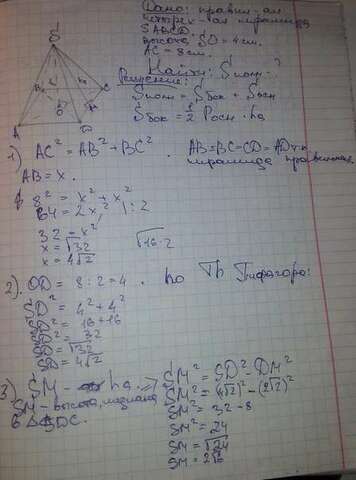 Дано: правильная
четырех-ая пирамида
SABCD.
высота SO = 4 см.
AC = 8 см.
Найти: Sполн - ?
Решение:
Sполн = Sбок + Sосн
Sбок = 1/2 Pосн · ha
S
A
B
C
D
O
1) AC² = AB² + BC².
AB=BC=CD=AD т.к
пирамида правильная
AB = x.
8² = x² + x²
64 = 2x² | : 2
32 = x²
x = √32
√16·2
x = 4√2
2). OD = 8 : 2 = 4. по Th Пифагора:
SD² = 4² + 4²
SD² = 16 + 16
SD² = 32
SD = √32
SD = 4√2
3) SM - ha =>
SM - высота, медиана
в ΔSDC.
SM² = SD² - DM²
SM² = (4√2)² - (2√2)²
SM² = 32 - 8
SM² = 24
SM = √24
SM = 2√6